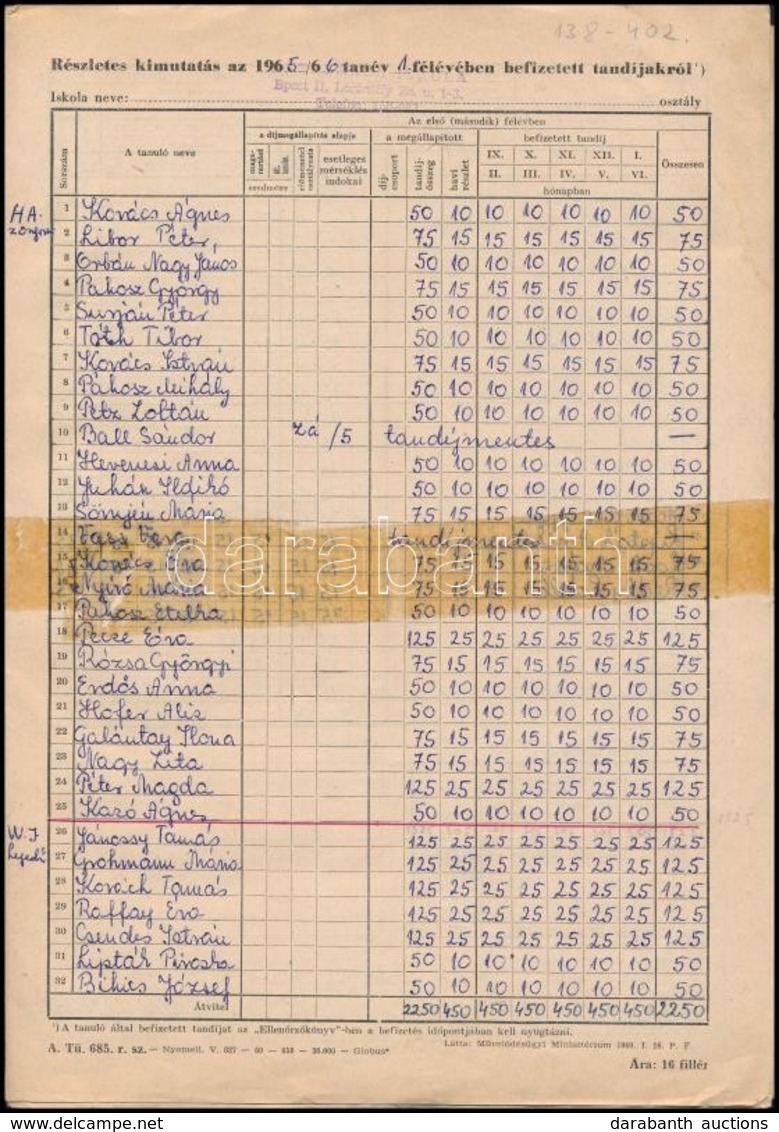 138-402.
Részletes kimutatás az 1965/66 tanév 1. félévében befizetett tandíjakról ¹)
Iskola neve: osztály
Az első (második) félévben
Sorszám A tanuló neve a díjmegállapítás alapja a megállapított befizetett tandíj Összesen
eredmény esetleges mérséklés indokai díjcsoport tandíjösszeg havi részlet IX. X. XI. XII. I.
II. III. IV. V. VI.
hónapban
HA. zongora
1 Kovács Ágnes 50 10 10 10 10 10 10 50
2 Libor Péter, 75 15 15 15 15 15 15 75
3 Orbán Nagy János 50 10 10 10 10 10 10 50
4 Pakosz György 75 15 15 15 15 15 15 75
5 Surján Péter 50 10 10 10 10 10 10 50
6 Tóth Tibor 50 10 10 10 10 10 10 50
7 Kovács István 75 15 15 15 15 15 15 75
8 Pákosz Mihály 50 10 10 10 10 10 10 50
9 Petz Zoltán 50 10 10 10 10 10 10 50
10 Ball Sándor zá /5 tandíjmentes —
11 Hevenesi Anna 50 10 10 10 10 10 10 50
12 Juhák Ildikó 50 10 10 10 10 10 10 50
13 Sömjén Mária 75 15 15 15 15 15 15 75
14 Éva tandíjmentes
15 Kovács Éva 75 15 15 15 15 15 15 75
16 Nyírő Mária 75 15 15 15 15 15 15 75
17 Pakosz Etelka 50 10 10 10 10 10 10 50
18 Pecze Éva 125 25 25 25 25 25 25 125
19 Rózsa Györgyi 75 15 15 15 15 15 15 75
20 Erdős Anna 50 10 10 10 10 10 10 50
21 Hofer Aliz 50 10 10 10 10 10 10 50
22 Galántay Ilona 75 15 15 15 15 15 15 75
23 Nagy Lita 75 15 15 15 15 15 15 75
24 Péter Magda 125 25 25 25 25 25 25 125
25 Kazó Ágnes 50 10 10 10 10 10 10 50
W. J hegedű
26 Jánossy Tamás 125 25 25 25 25 25 25 125
27 Grohmann Mária 125 25 25 25 25 25 25 125
28 Kovách Tamás 125 25 25 25 25 25 25 125
29 Raffay Éva 125 25 25 25 25 25 25 125
30 Csendes István 125 25 25 25 25 25 25 125
31 Lipták Piroska 50 10 10 10 10 10 10 50
32 Bihics József 50 10 10 10 10 10 10 50
Átvitel 2250 450 450 450 450 450 450 2250
¹) A tanuló által befizetett tandíjat az „Ellenőrzőkönyv”-ben a befizetés időpontjában kell nyugtázni.
A. Tü. 685. r. sz. — Nyomell. V. 627 — 60 — 36.000 — Globus" Látta: Művelődésügyi Minisztérium 1960. I. 16. P. F
Ára: 16 fillér
darabanth
www.darabanth.com darabanth auctions